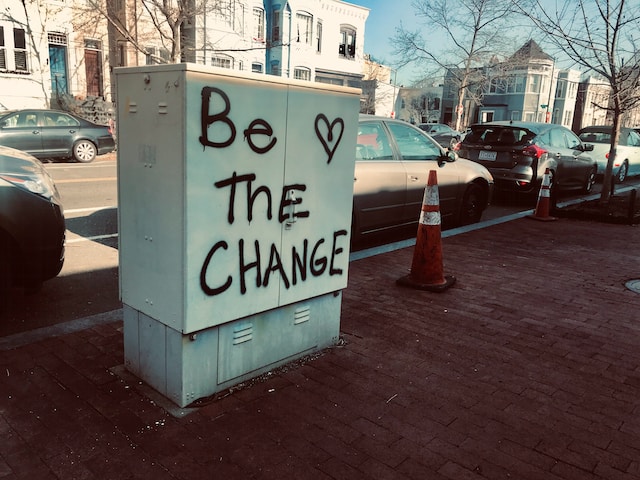 Be
ThE
CHANGE